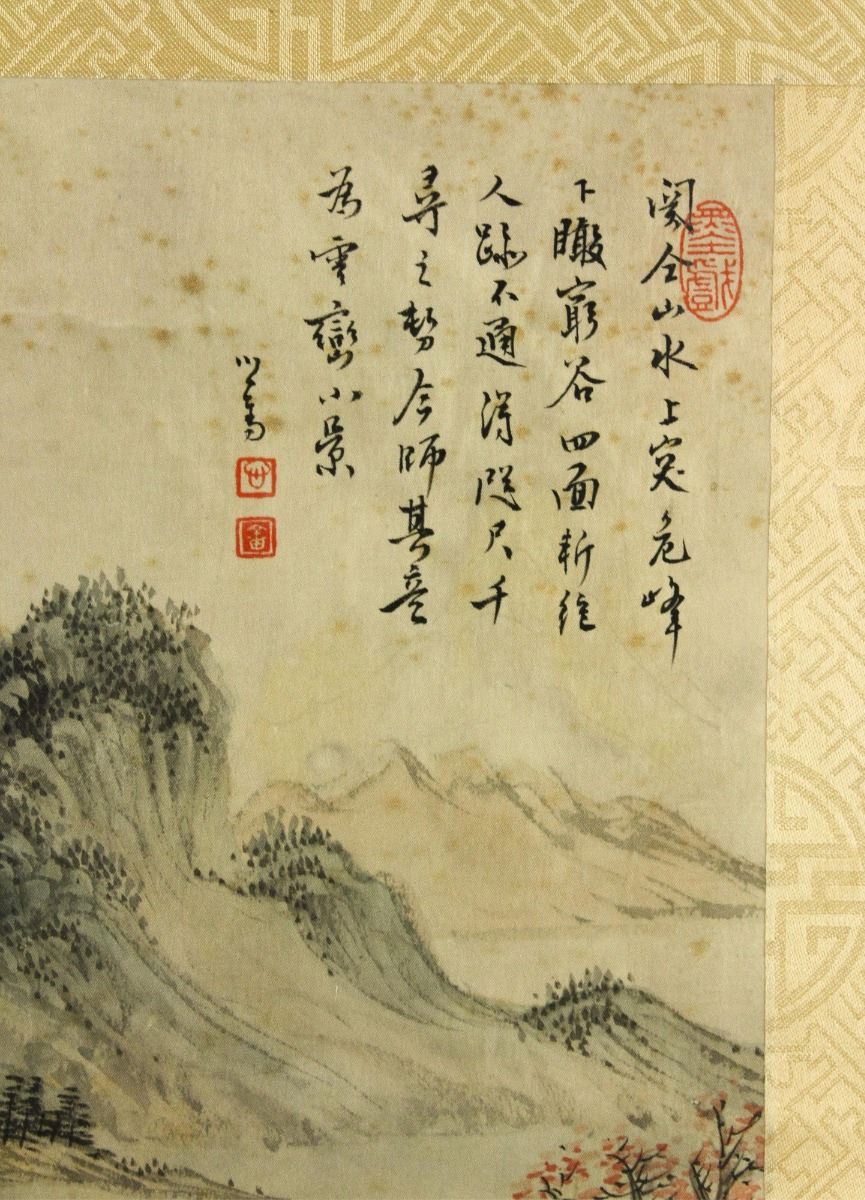 関仝山水上突危峰
下瞰窮谷四面斬絕
人跡不通得咫尺千
尋之勢今師其意
為雲巒小景
心畬